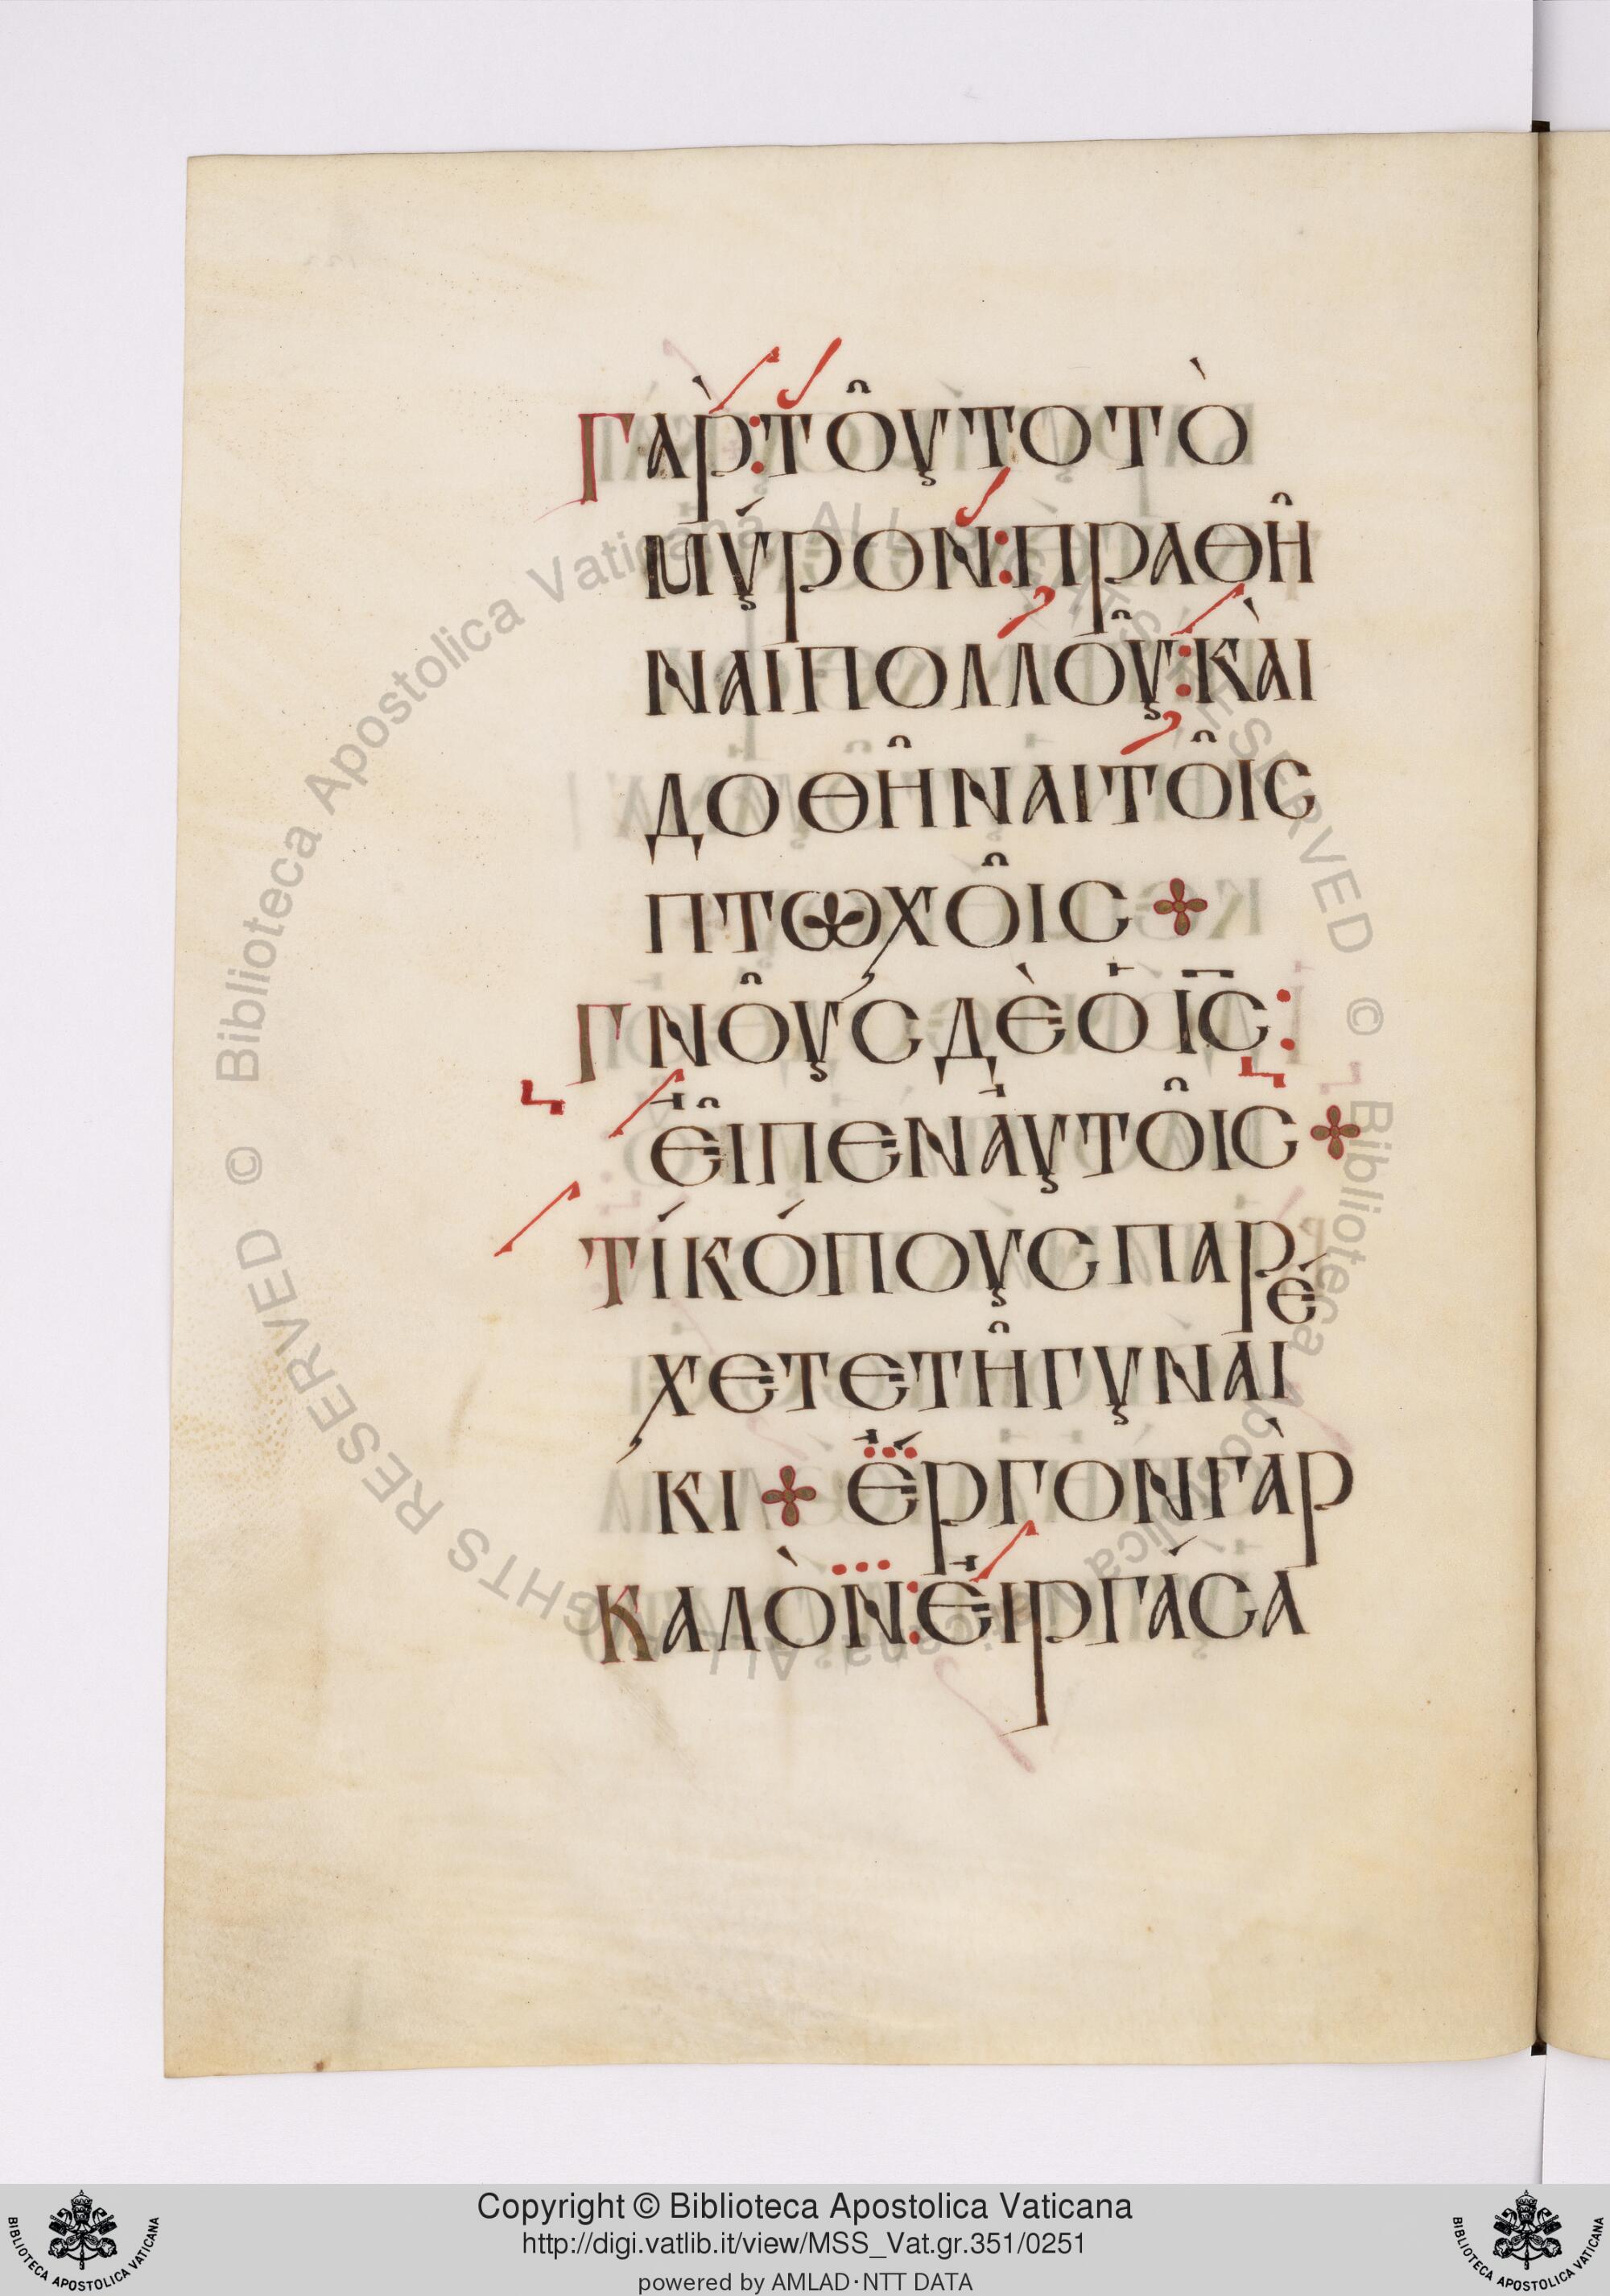 ΓΑΡ̀:ΤΟΥ͂ΤΟΤῸ
ΜΎΡΟΝ:ΠΡΑΘΗ͂
ΝΑΙΠΟΛΛΟΥ͂:ΚΑῚ
ΔΟΘΗ͂ΝΑΙΤΟΙ͂Ϲ
ΠΤΩΧΟΙ͂Ϲ ✤
ΓΝΟΥ͂ϹΔῈὉ Ι̅Ϲ̅:
ΕἾΠΕΝΑὐΤΟΙ͂Ϲ ✤
ΤΊΚΌΠΟΥϹΠΑΡΈ
ΧΕΤΕΤΗ͂ΓΥΝΑΙ
ΚΙ ✤ ἜΡΓΟΝΓᾺΡ
ΚΑΛῸΝ:ἘΙΡΓΆϹΑ
© Biblioteca Apostolica Vaticana, ALL RIGHTS RESERVED
© Biblioteca Apostolica Vaticana, ALL RIGHTS RESERVED
Copyright © Biblioteca Apostolica Vaticana
http://digi.vatlib.it/view/MSS_Vat.gr.351/0251
powered by AMLAD·NTT DATA
BIBLIOTECA APOSTOLICA VATICANA
BIBLIOTECA APOSTOLICA VATICANA